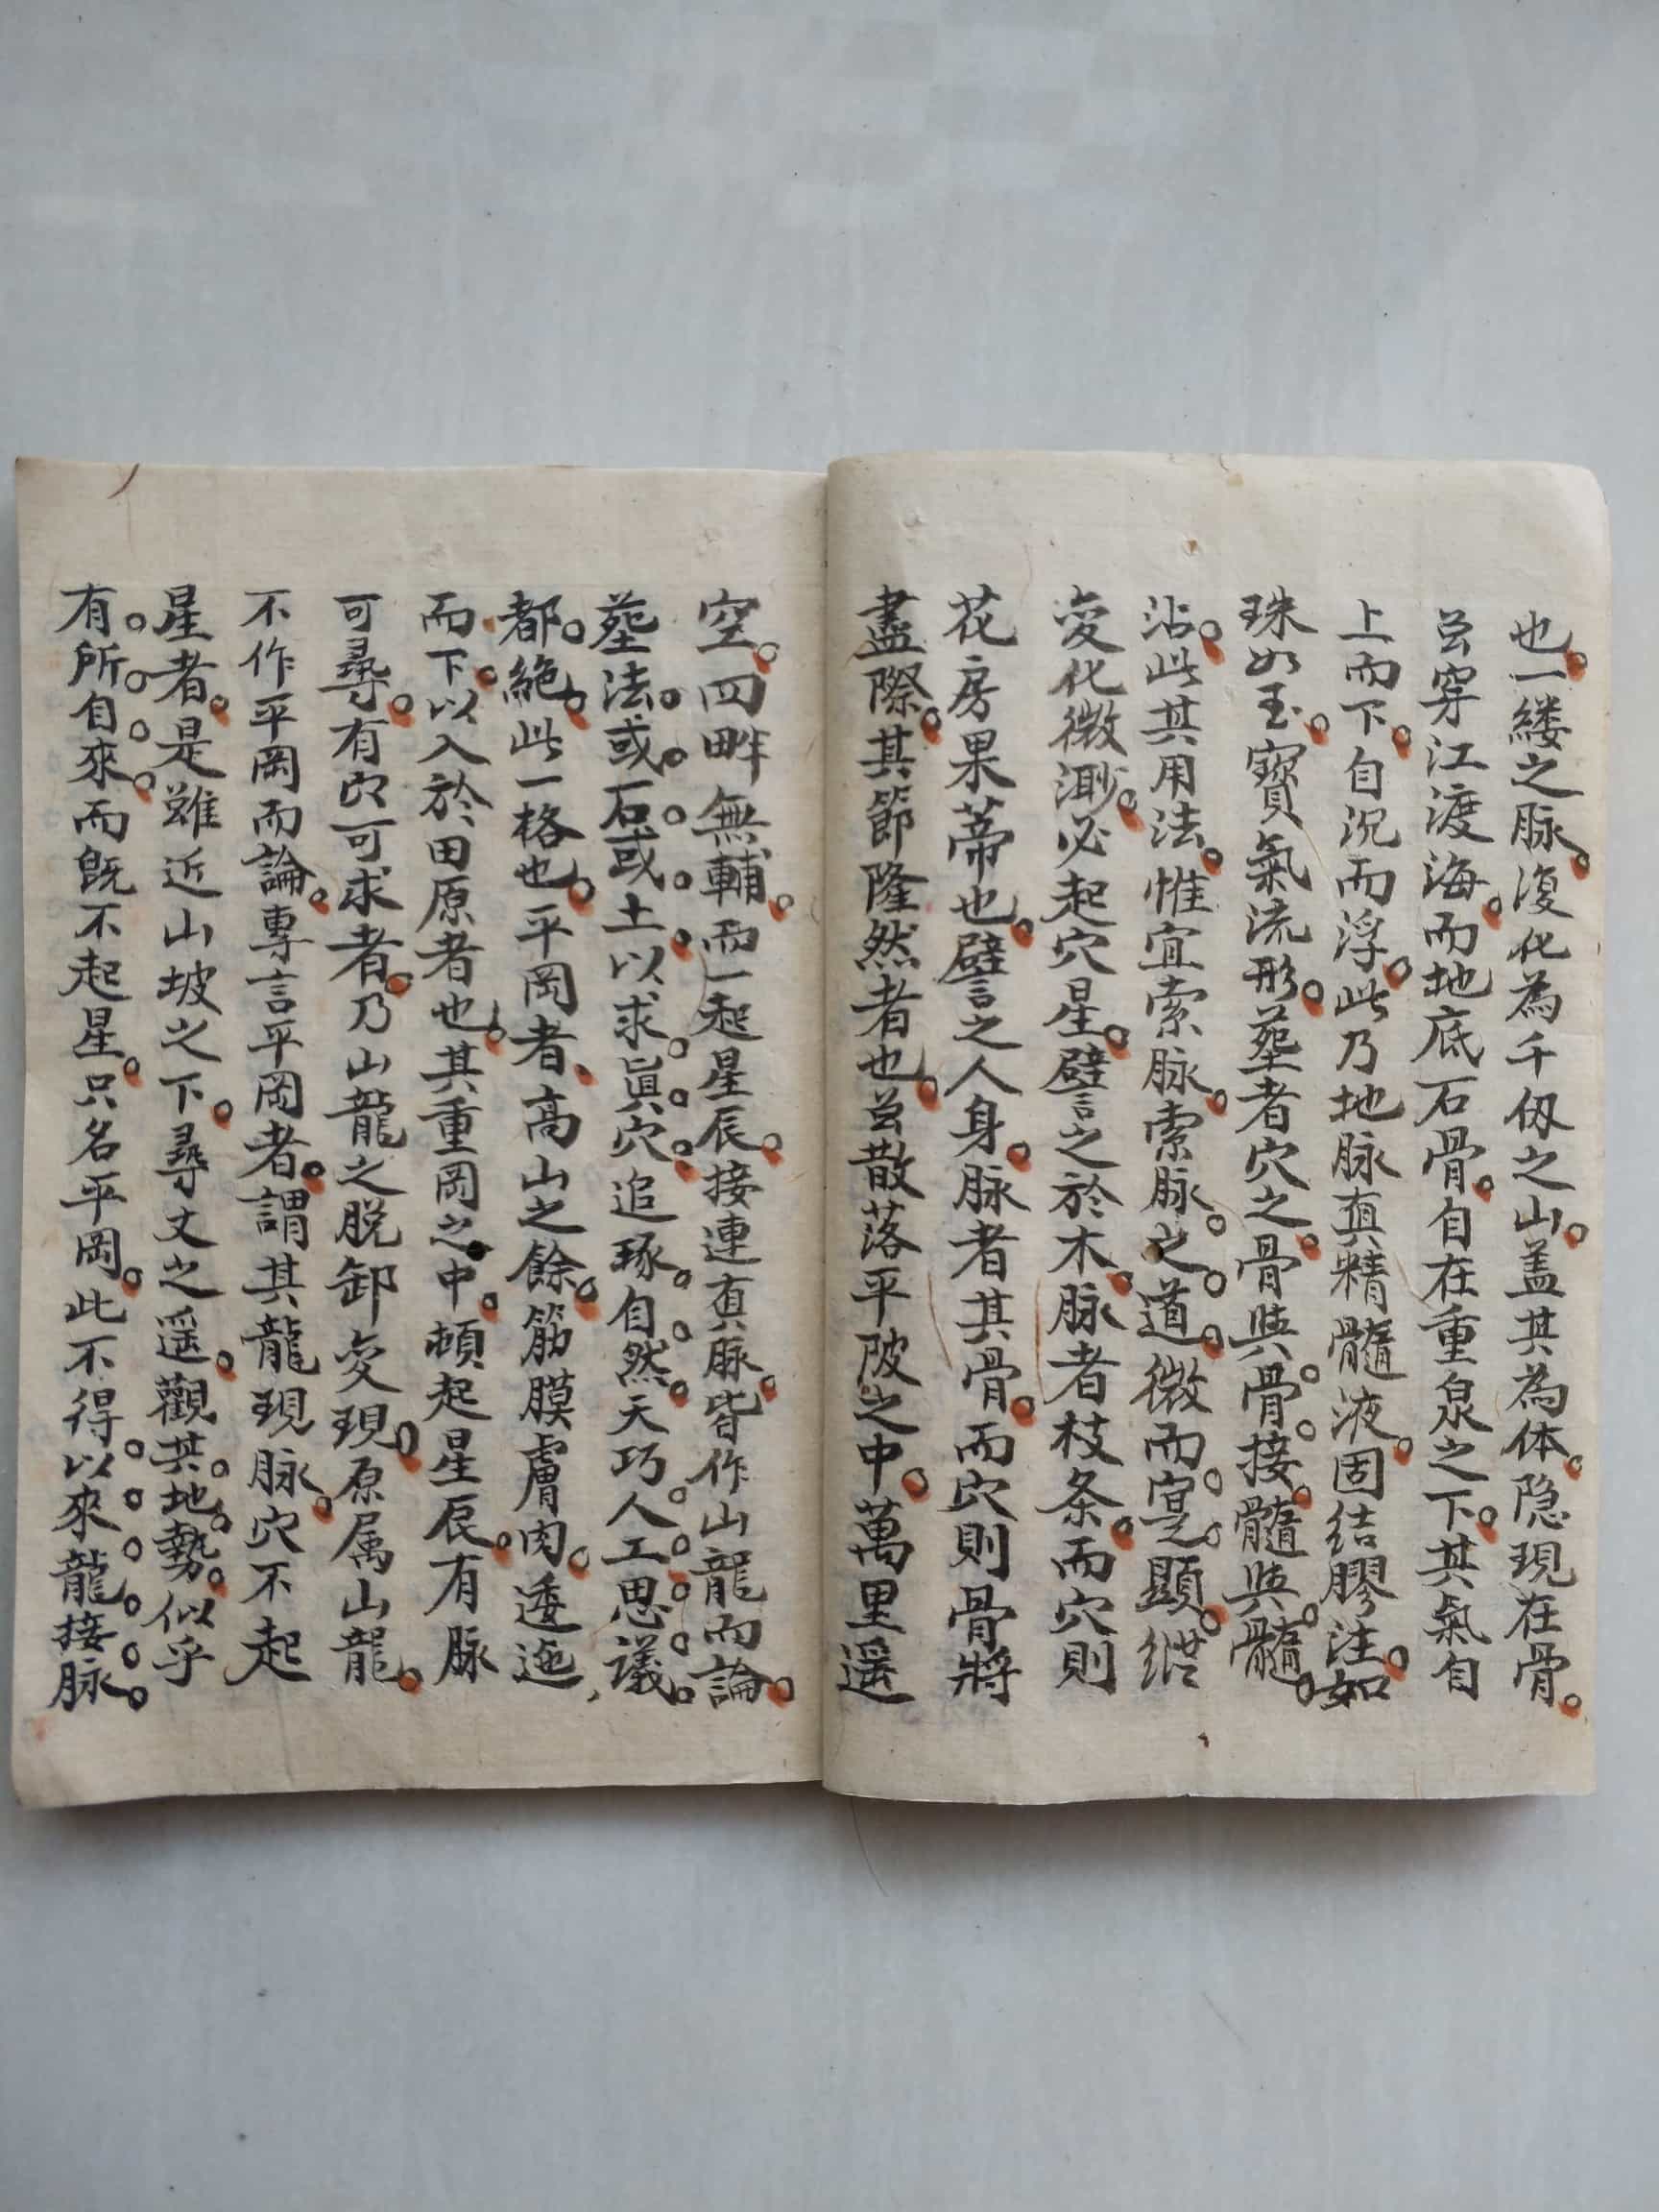 也。一縷之脉。復化為千仭之山。盖其為体。隐現在骨。
若穿江渡海。而地底石骨。自在重泉之下。其氣自
上而下。自沉而浮。此乃地脉真精髓液。固結膠注。如
珠如玉。寶氣流形。塟者穴之。骨與骨。接。髓與。髓。
沾。此其用法。惟宜索脉。索脉。之。道。微而。寔。顯。縱
变化微渺。必起穴星。譬之於木。脉者枝条。而穴則
花房果蒂也。譬之人身。脉者其骨。而穴則骨將
盡際。其節隆然者也。若散落平陂之中。萬里遥
空。四畔無輔。而一起星辰。接連真脉。皆作山龍而論。
塟法。或。石。或。土。以求。眞。穴。追琢。自。然。天巧。人。工。思。議。
都。絶。此一格也。平岡者、高山之餘。筋膜膚肉。逶迤、
而下。以入於田原者也。其重岡之中。頓起星辰。有脉
可尋。有穴可求者。乃山龍之脱卸变現。原属山龍。
不作平岡而論。專言平岡者。謂其龍現脉。穴不起
星者。是雖近山坡之下。尋丈之遥。觀其。地。勢。似乎
有。所。自。來。而既不起星。只名平岡。此不得。以。來。龍。接。脉。